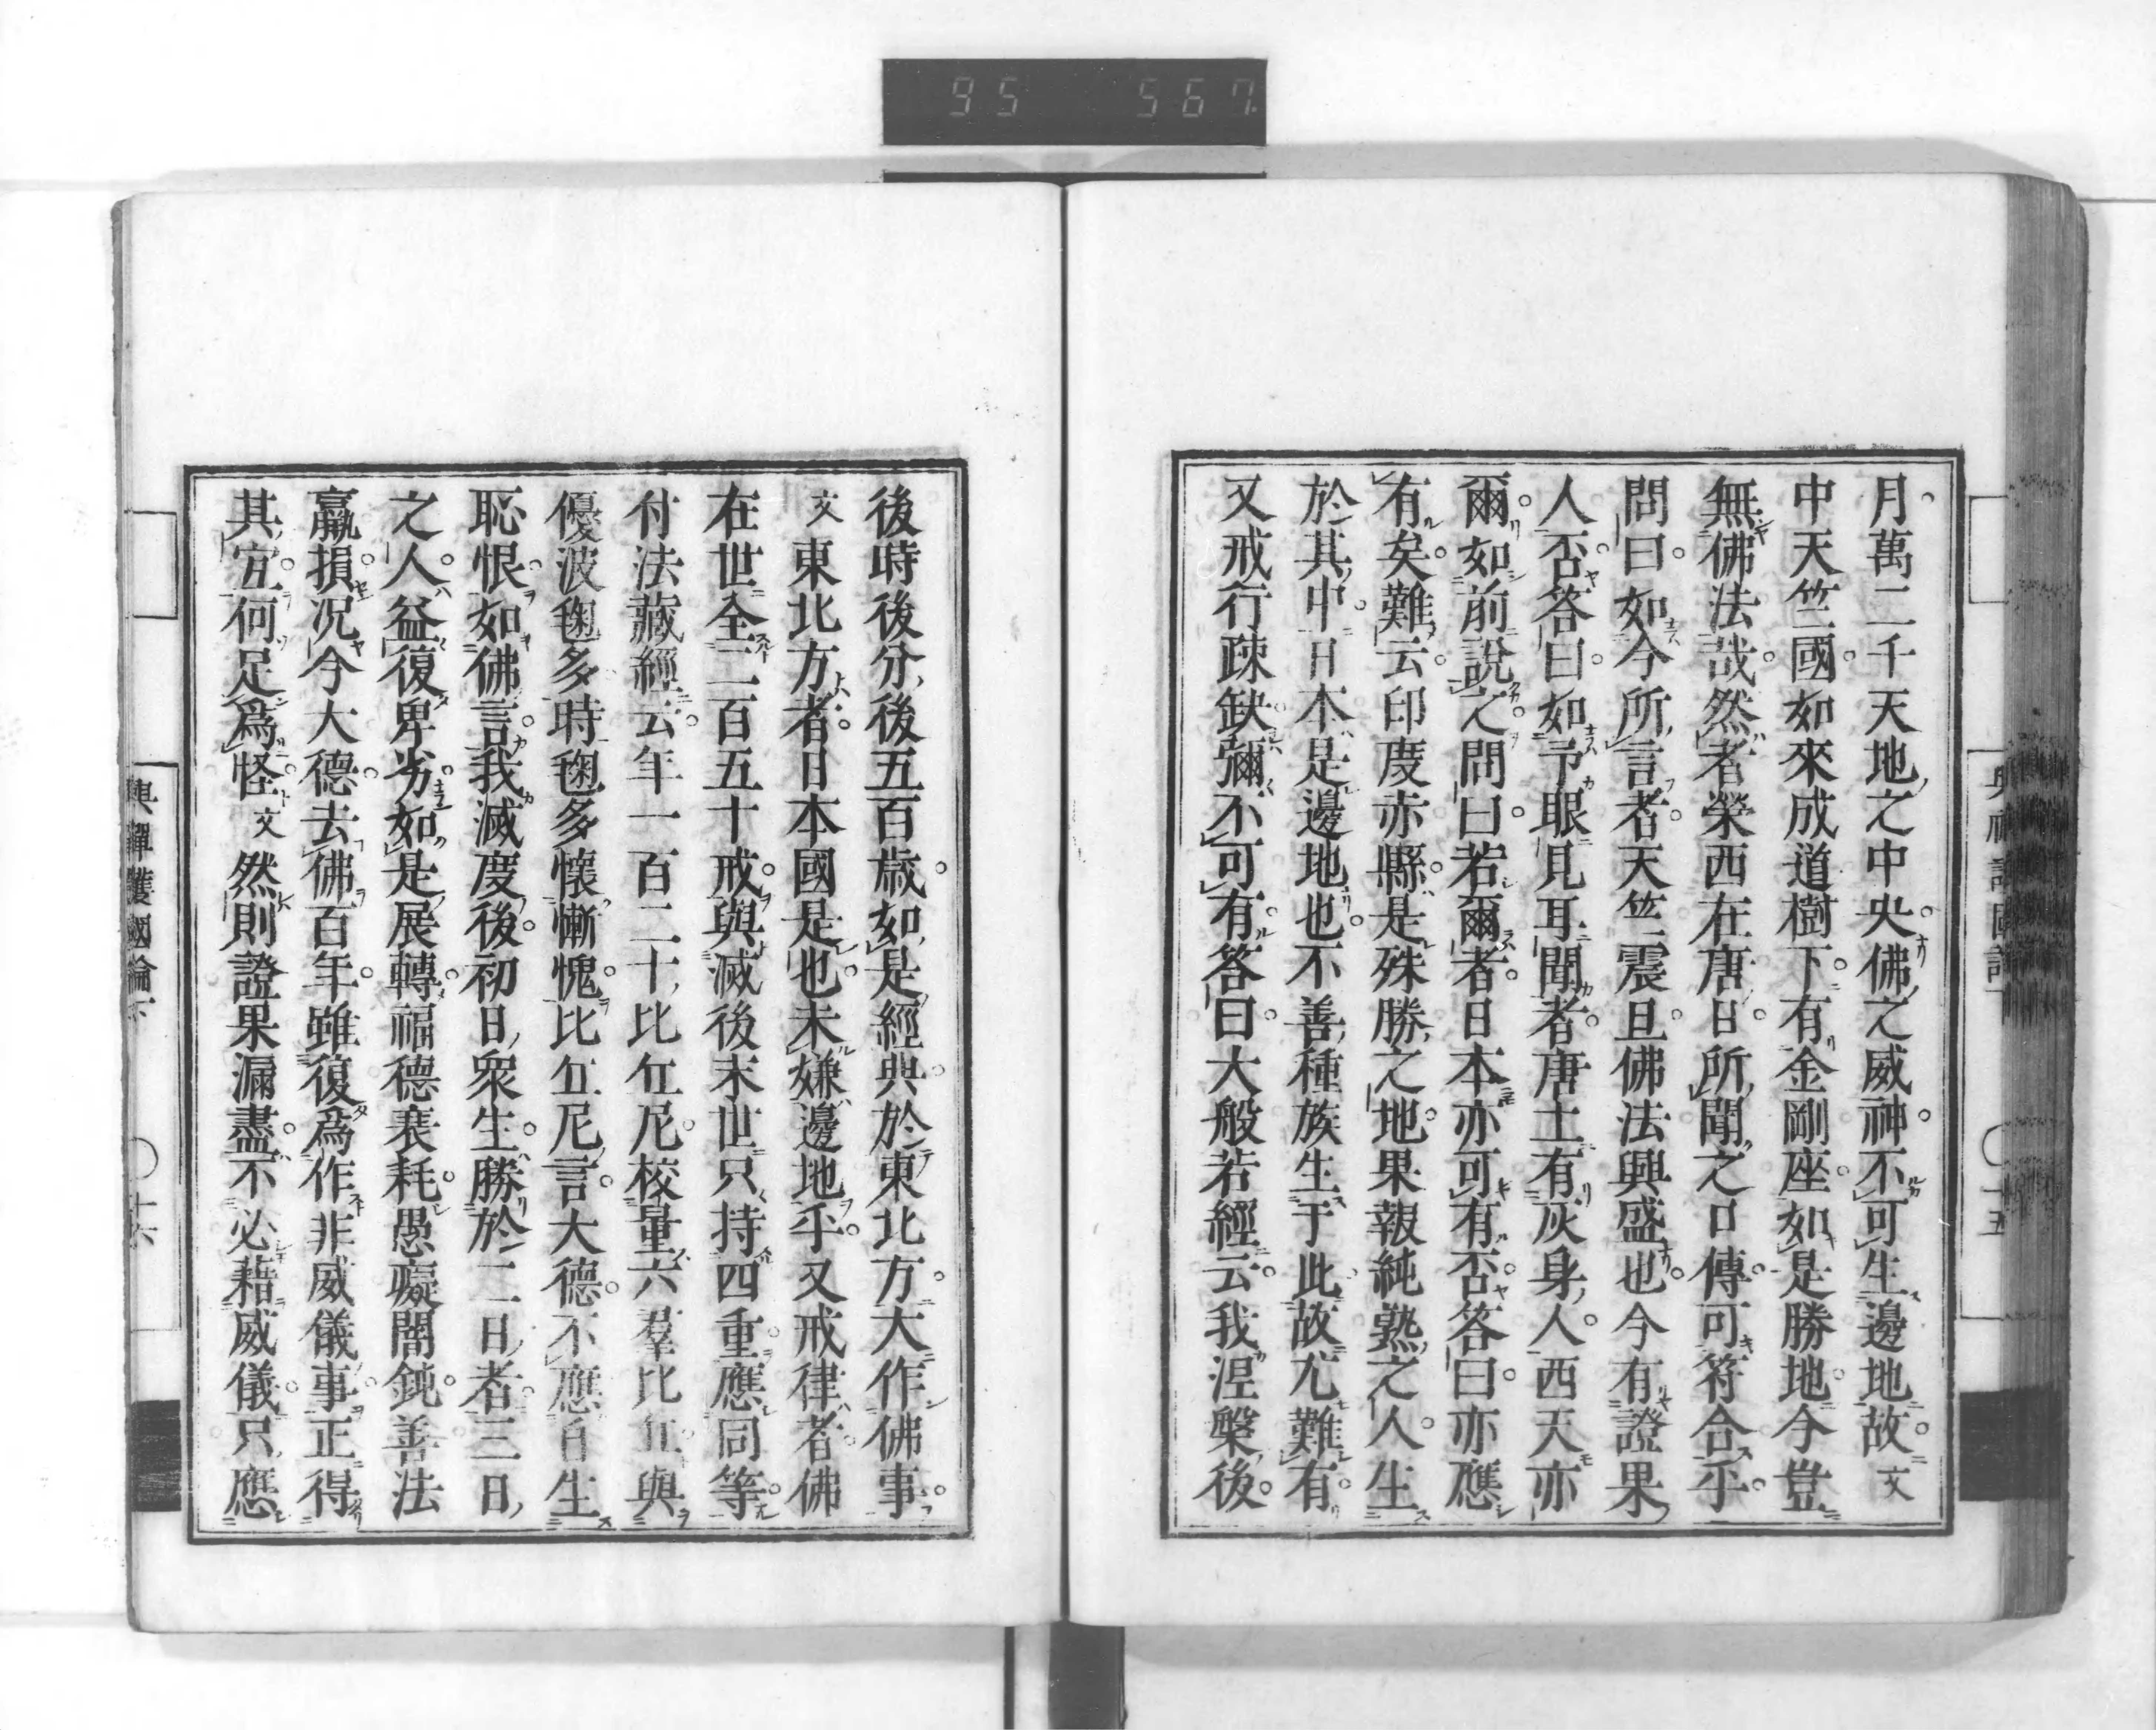 95 567
月萬二千天地之中央佛之威神不可生邊地故文
中天竺國如來成道樹下有金剛座如是勝地今豈
無佛法哉然者榮西在唐日所聞之口傳可符合乎
問曰如今所言者天竺震旦佛法興盛也今有證果
人否答曰如予眼見耳聞者唐土有灰身人西天亦
爾如前說之問曰若爾者日本亦可有否答曰亦應
有矣難云印度赤縣是殊勝之地果報純熟之人生
於其中日本是邊地也不善種族生于此故尤難有
又戒行疎缺彌不可有答曰大般若經云我涅槃後
後時後分後五百歲如是經典於東北方大作佛事
文東北方者日本國是也未嫌邊地乎又戒律者佛
在世全二百五十戒與滅後末世只持四重應同等
付法藏經云年一百二十比丘尼校量六羣比丘與
優波毱多時毱多懷慚愧比丘尼言大德不應自生
恥恨如佛言我滅度後初日衆生勝於二日者三日
之人益復卑劣如是展轉福德衰耗愚癡闇鈍善法
羸損況今大德去佛百年雖復爲作非威儀事正得
其宜何足爲怪文然則證果漏盡不必藉威儀只應
興禪護國論下
十六